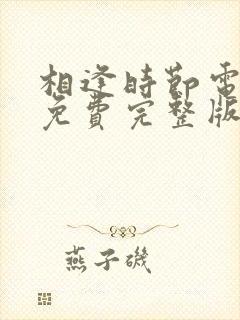 相逢時節電
免費完整版
燕子磯